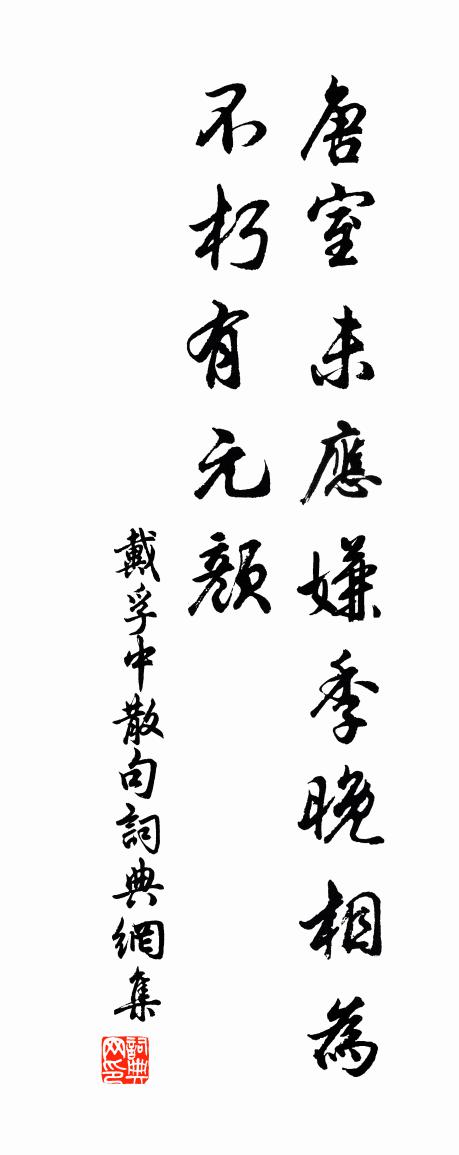 唐室未應嫌季晚相為
不朽有元顏
戴孚中散句詞典網集
詞典网印